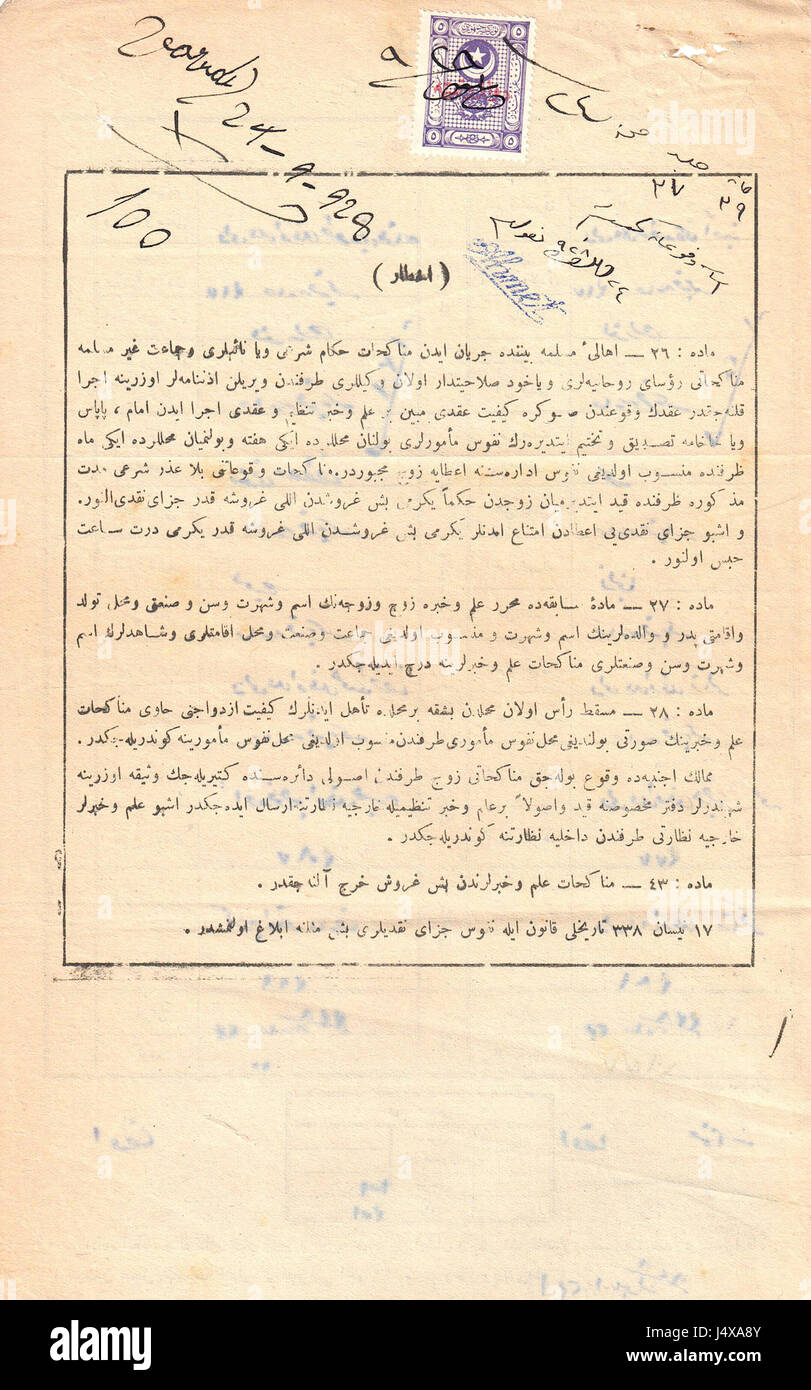 24-9-928
100
( اخطار )
Ahmet
ماده : ٢٦ — اهالیٔ مسلمه بیننده جریان ایدن مناکحات حکام شرعی ویا نائبلری وجماعت غیر مسلمه
مناکحاتی رؤسای روحانیه‌لری ویاخود صلاحیتدار اولان وکیللری طرفندن ویریلن اذننامه‌لر اوزرینه اجرا
قلنه‌جقدر عقدك وقوعندن صوکره کیفیت عقدی مبین بر علم وخبر تنظیم و عقدی اجرا ایدن امام ، پاپاس
ویا خاخامه تصدیق و تختیم ایتدیره‌رك نفوس مأمورلری بولنان محللرده ایکی هفته وبولنمیان محللرده ایکی ماه
ظرفنده منسوب اولدیغی نفوس اداره‌سنه اعطایه زوج مجبوردر. مناکحات وقوعاتنی بلا عذر شرعی مدت
مذکوره ظرفنده قید ایتدیرمیان زوجدن حکماً یکرمی بش غروشدن اللی غروشه قدر جزای نقدی النور.
و اشبو جزای نقدی‌یی اعطادن امتناع ایدنلر یکرمی بش غروشدن اللی غروشه قدر یکرمی درت ساعت
حبس اولنور .
ماده : ٢٧ — مادهٔ سابقه‌ده محرر علم وخبره زوج وزوجه‌نك اسم وشهرت وسن و صنعتی ومحل تولد
واقامتی پدر و والده‌لرینك اسم وشهرت و منسوب اولدیغی جماعت وصنعت ومحل اقامتلری وشاهدلرك اسم
وشهرت وسن وصنعتلری مناکحات علم وخبرلرینه درج ایدیله‌جکدر .
ماده : ٢٨ — مسقط رأس اولان محلدن بشقه برمحلده تأهل ایدنلرك کیفیت ازدواجنی حاوی مناکحات
علم وخبرینك صورتی بولندیغی محل نفوس مأموری طرفندن منسوب اولدیغی محل نفوس مأمورینه کوندریله‌جکدر.
ممالك اجنبیه‌ده وقوع بوله‌جق مناکحاتی زوج طرفندن اصولی دائره‌سنده کتیریله‌جك وثیقه اوزرینه
شهبندرلر دفتر مخصوصنه قید واصولاً برعلم وخبر تنظیمیله خارجیه نظارتنه ارسال ایده‌جکدر اشبو علم وخبرلر
خارجیه نظارتی طرفندن داخلیه نظارتنه کوندریله‌جکدر .
ماده : ٤٣ — مناکحات علم وخبرلرندن بش غروش خرج آلنه‌جقدر .
١٧ نیسان ٣٣٨ تاریخلی قانون ایله نفوس جزای نقدیلری بش مثلنه ابلاغ اولنمشدر .
alamy
Image ID: J4XA8Y
www.alamy.com